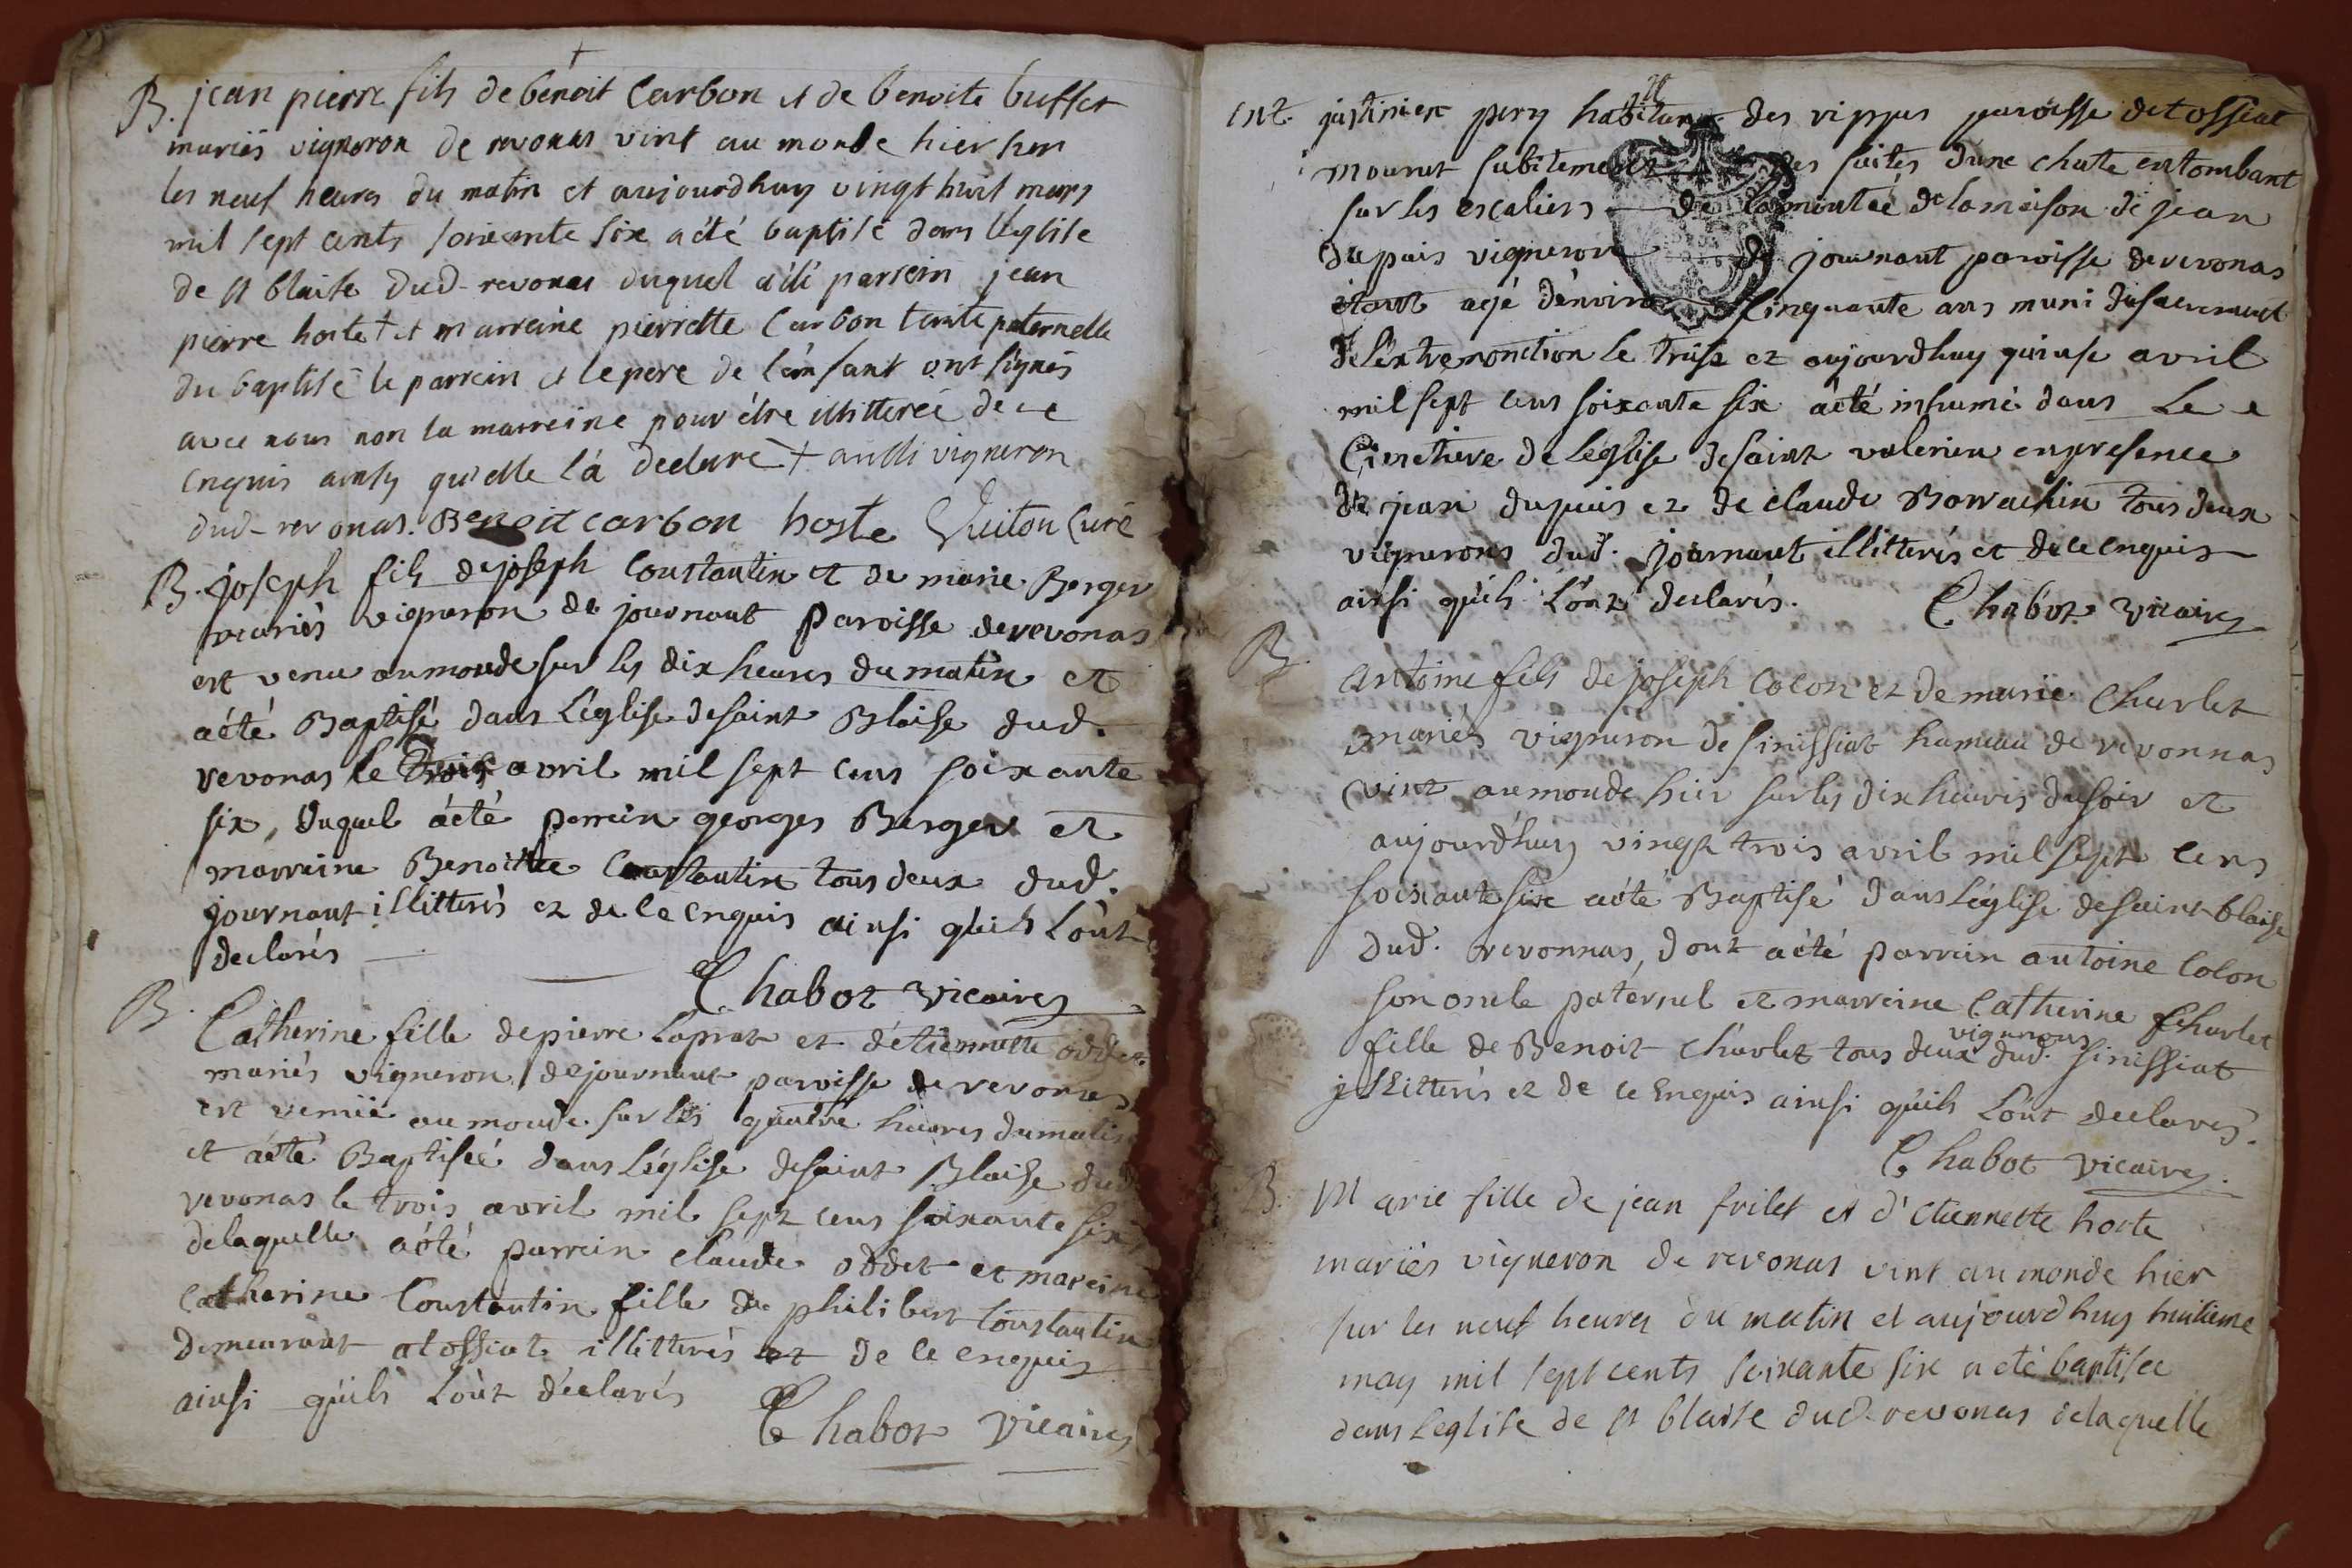 B. jean pierre fils de bénoit Carbon et de benoite buffet
mariés vigneron de revonas vint au monde hier sur
les neuf heures du matin et aujourdhuy vingt huit mars
mil sept cents soixante six a été baptisé dans l'église
de st blaise dud. revonas duquel a été parrein jean
pierre hoste + et marreine pierrette Carbon tante paternelle
du baptisé le parrein et le pere de l'énfant ont signés
avec nous non la marreine pour étre illitterée de ce
enquis ainsy qu'elle l'á declaré + aussi vigneron
dud. revonas. Benoit carbon hoste Guiton Curé
B. joseph fils de joseph Constantin et de marie Berger
mariés vigneron de journant paroisse de revonas
est venu au monde sur les dix heures du matin et
a été Baptisé dans L'église de saint Blaise dud.
revonas le trois avril mil sept cens soixante
six, duquel a été parrein georges Berger et
marreine Benoitte Constantin tous deux dud.
journant illitterés et de ce enquis ainsi quils L'ont
declarés
Chabot vicaire
B. Catherine fille de pierre Laprat et d'étiennette oddet
mariés vigneron de journant paroisse de revonas
est venüe au monde sur les quatre heures du matin
et a été Baptisée dans L'église de saint Blaise dud
revonas le trois avril mil sept cens soixante six
de laquelle a été parrein claude oddet et mareine
Catherine Constantin fille de philibert Constantin
demeurant a tossiat illitterés et de ce enquis
ainsi qu'ils L'ont déclarés
Chabot vicaire
Ent. justinien pery habitant des rippes paroisse de tossiat
mourut subitement des suites d'une chute en tombant
sur les escaliers de la montée de la maison de jean
dupuis vigneron de journant paroisse de revonas
étant agé d'environ Cinquante ans muni du sacrement
de l'extremonction le treise et aujourdhuy quinse avril
mil sept cens soixante six a été inhumé dans Le
Cimetiere de L'église de saint valerien en presence
de jean dupuis et de claude Borrachin tous deux
vignerons dud. journant illitterés et de ce enquis
ainsi qu'ils L'ont declarés. Chabot vicaire
B.
antoine fils de joseph Colon et de marie Charlet
mariés vigneron de sinissiat hameau de revonnas
vint au monde hier sur les dix heures du soir et
aujourd'huy vingt trois avril mil sept cens
soixante six a été Baptisé dans L'église de saint blaise
dud. revonnas, dont a été parrein antoine Colon
son oncle paternel et marreine Catherine Charlet
vignerons
fille de Benoit Charlet tous deux dud. sinissiat
jllitterés et de ce Enquis ainsi qu'ils L'ont declarés.
Chabot vicaire
B. Marie fille de jean frilet et d'étiennette hoste
mariés vigneron de revonas vint au monde hier
sur les neuf heures du matin et aujourdhuy huitieme
may mil sept cents soixante six a été baptisée
dans l'eglise de st blaise dud. revonas de laquelle